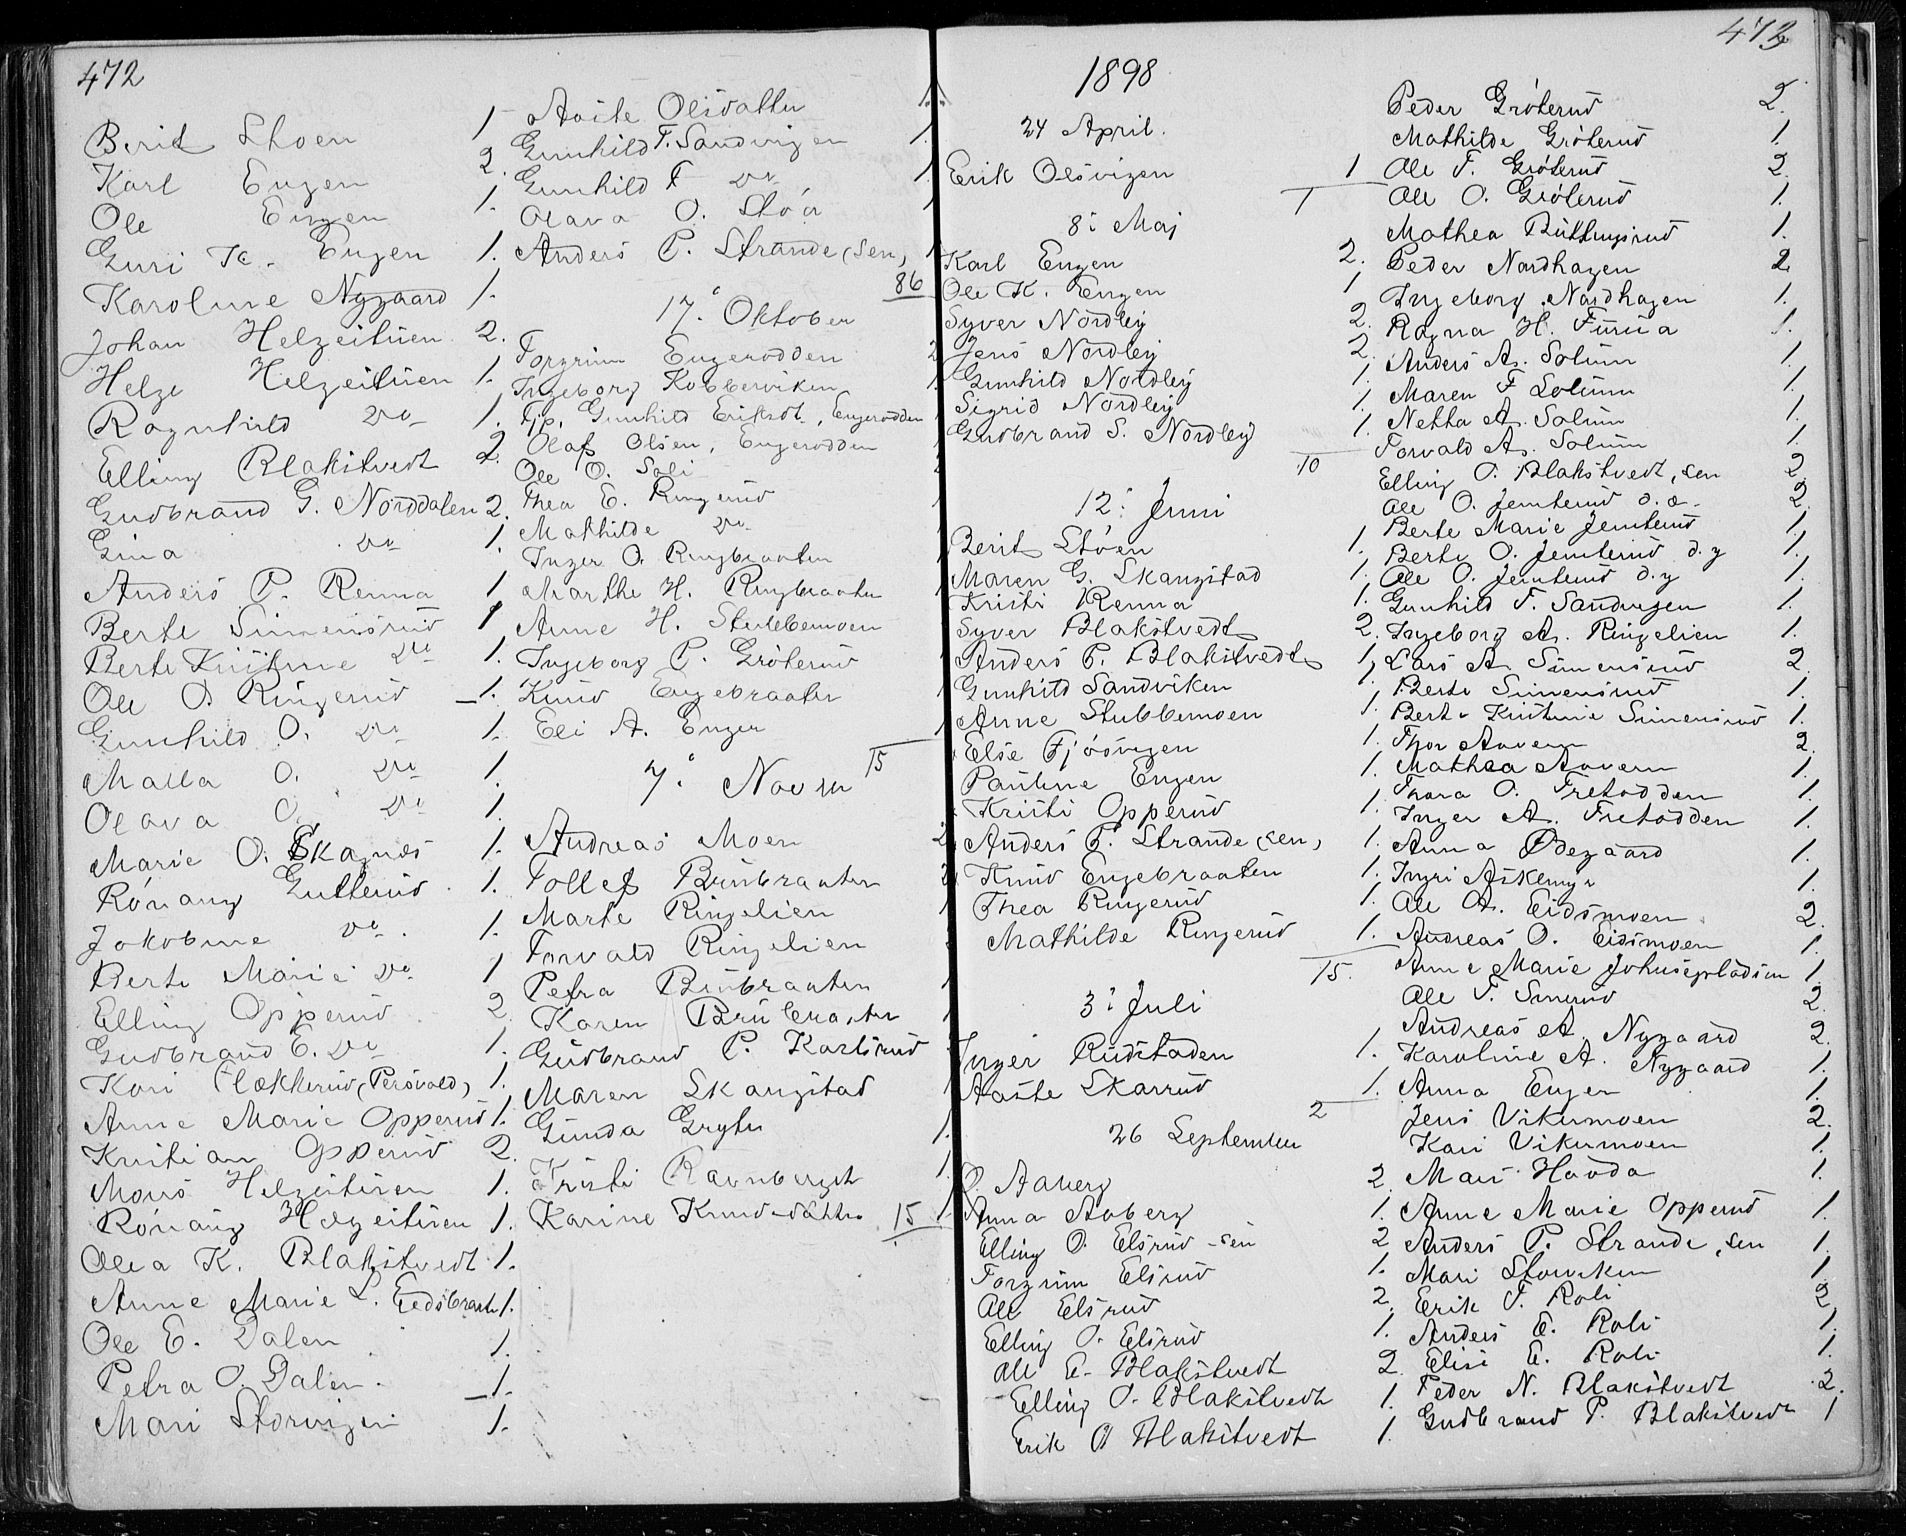 472
Berit Stoen 1
Karl Engen 2
Ole Engen 1
Guri K. Engen 1.
Karoline Nygaard 1.
Johan Helgeituen 2.
Helge Helgeituen 1.
Ragnhild do 1.
Elling Blakstvedt 2.
Gudbrand G. Norddalen 2.
Gina do 1.
Anders P. Renna 1
Berte Simensrud 1
Berte Kristine do 1.
Ole O. Ringerud 1.
Gunhild O. do 1.
Malla O. do 1.
Olava O. do 1.
Marie O. Skagnæs 1.
Rønaug Gutterud 1.
Jakobine do. 1.
Berte Marie do 1
Elling Opperud 2
Gudbrand E. do 1.
Kari Flækkerud (Persvold) 1.
Anne Marie Opperud 1.
Kristian Opperud 2.
Mons Helgeituen 1.
Rønaug Helgeituen 1.
Olea K. Blakstvedt 1.
Anne Marie L. Eedsbraaten 1.
Ole E. Dalen 1.
Petra O. Dalen 1.
Mari Storvigen 1.
Aaste Olsdatter
Gunhild T. Sandvigen 1.
Gunhild T do 1.
Olava O. Stöa 1
Anders P. Strande (sen) 1
86
17. Oktober
Torgrim Engerodden 2
Ingeborg Kobberviken 1
Tjp. Gunhild Eriksdt., Engerodden
Olaf Olsen, Engerodden
Ole O. Soli
Thea E. Ringerud
Mathilde do
Inger O. Ringbraaten
Marthe H. Ringbraaten
Anne H. Stubbemoen
Ingeborg P. Gröterud
Knud Engebraaten
Eli A. Enger
15
7. Novbr
Andreas Moen 2
Tollef Brubraaten
Marte Ringelien
Torvald Ringelien
Petra Brubraaten
Karen Brubraaten
Gudbrand P. Karlsrud
Maren Skangstad
Gunda Gryte 1.
Kristi Ravnberget 1
Karine Knudsdatter 1
15
473
1898
24 April.
Erik Olsvigen 1
1
8: Maj
Karl Engen 2.
Ole K. Engen 1
Syver Nordby 2.
Jens Nordby 2.
Gunhild Nordby 1.
Sigrid Nordby 1.
Gudbrand S. Nordby 1.
10
12: Juni
Berit Stöen 1.
Maren G. Skangstad 1.
Kristi Renna 1.
Syver Blakstvedt 2.
Anders P. Blakstvedt 1.
Gunhild Sandviken 1.
Anne Stubbemoen 1.
Else Fjösvigen 1.
Pauline Engen 1.
Kristi Opperud 1.
Anders P. Strande (sen) 1.
Knud Engebraaten 1.
Thea Ringerud 1.
Mathilde Ringerud 1.
15.
3: Juli
Inger Rudstaden 1.
Aaste Skarrud 1.
2
26 September
O. Aaberg 2
Anna Aaberg 1.
Elling O. Elsrud sen 2
Torgrim Elsrud 1.
Ole Elsrud 2
Elling O. Elsrud 1.
Ole E. Blakstvedt 2
Elling O. Blakstvedt 1.
Erik O Blakstvedt 1.
Peder Gröterud 2.
Mathilde Gröterud 1.
Ole T. Gröterud 2.
Ole O. Gröterud 1.
Mathea Buttingsrud 1.
Peder Nordhagen 2.
Ingeborg Nordhagen 1.
Ragna H. Furua 1.
Anders A. Solum 1.
Maren T Solum 1.
Netha A. Solum 1.
Torvald A. Solum 1.
Elling O. Blakstvedt, sen 2
Ole O. Jemterud d.æ. 2.
Berte Marie Jemterud 1.
Berte O. Jemterud d.y 1.
Ole O. Jemterud d.y 1.
Gunhild T. Sandvigen 1.
Ingeborg A. Ringelien 1.
Lars A Simensrud 2.
Berte Simensrud 1.
Berte Kristine Simensrud 1.
Thor Aavern 2.
Mathea Aavern 1.
Thora O. Tretodden 1.
Inger A. Tretodden 1.
Anna Ødegaard 1.
Ingri Askemyr 1.
Ole A. Eidsmoen 2.
Andreas O. Eidsmoen 1.
Anne Marie Johnsenpladsen 1.
Ole T. Smerud 2.
Andreas A. Nygaard 2.
Karoline A. Nygaard 1.
Anna Enger 1.
Jens Vikermoen 2.
Kari Vikermoen 1.
Mari Havda 1.
Anne Marie Opperud 1.
Anders P. Strande, sen 1.
Mari Storviken 1
Erik T. Roli 2
Anders E. Roli 1.
Elise E. Roli 1.
Peder N. Blakstvedt 2.
Gudbrand P. Blakstvedt 1